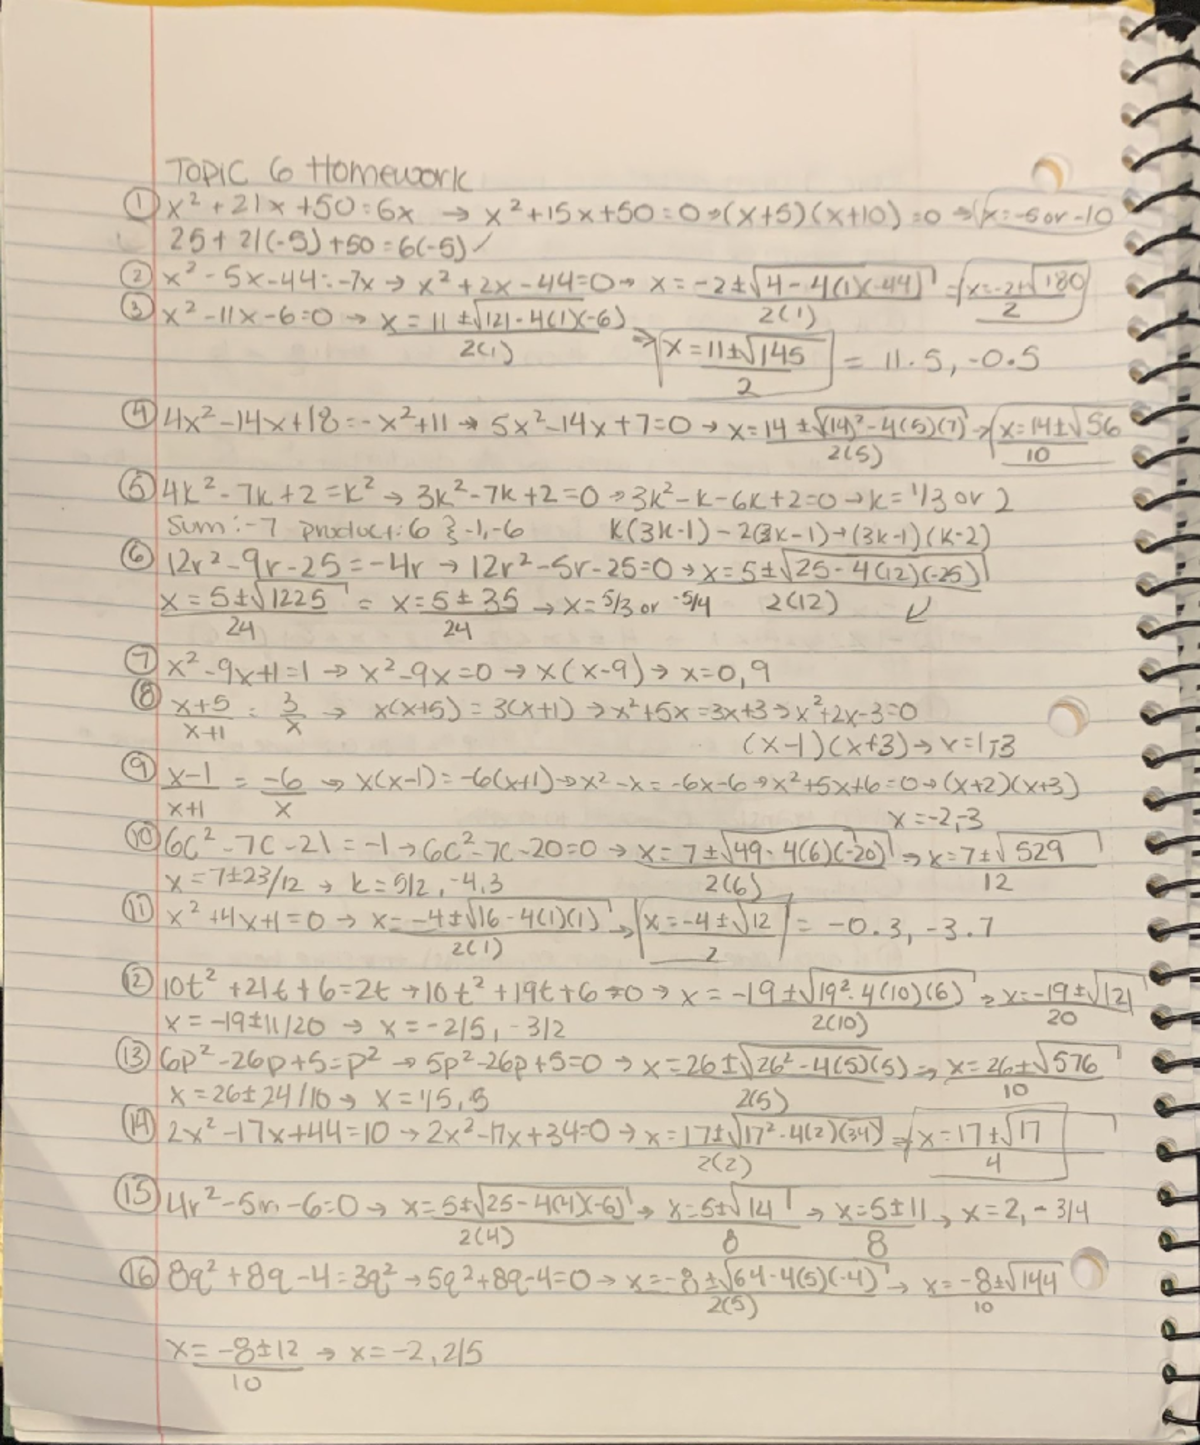 Topic 6 Homework
① x² + 21x + 50 = 6x → x² + 15x + 50 = 0 → (x+5)(x+10) = 0 → x = -5 or -10
25 + 21(-5) + 50 = 6(-5) ✓
② x² - 5x - 44 = -7x → x² + 2x - 44 = 0 → x = -2 ± √4 - 4(1)(-44) / 2(1) → x = -2 ± √180 / 2
③ x² - 11x - 6 = 0 → x = 11 ± √121 - 4(1)(-6) / 2(1) → x = 11 ± √145 / 2 = 11.5, -0.5
④ 4x² - 14x + 18 = -x² + 11 → 5x² - 14x + 7 = 0 → x = 14 ± √(14)² - 4(5)(7) / 2(5) → x = 14 ± √56 / 10
⑤ 4k² - 7k + 2 = k² → 3k² - 7k + 2 = 0 → 3k² - k - 6k + 2 = 0 → k = 1/3 or 2
Sum: -7 product: 6 } -1, -6 k(3k-1) - 2(3k-1) → (3k-1)(k-2)
⑥ 12r² - 9r - 25 = -4r → 12r² - 5r - 25 = 0 → x = 5 ± √25 - 4(12)(-25) / 2(12)
x = 5 ± √1225 / 24 = x = 5 ± 35 / 24 → x = 5/3 or -5/4
⑦ x² - 9x + 1 = 1 → x² - 9x = 0 → x(x-9) → x = 0, 9
⑧ x+5 / x+1 = 3 / x → x(x+5) = 3(x+1) → x² + 5x = 3x + 3 → x² + 2x - 3 = 0
(x-1)(x+3) → x = 1, -3
⑨ x-1 / x+1 = -6 / x → x(x-1) = -6(x+1) → x² - x = -6x - 6 → x² + 5x + 6 = 0 → (x+2)(x+3)
x = -2, -3
⑩ 6c² - 7c - 21 = -1 → 6c² - 7c - 20 = 0 → x = 7 ± √49 - 4(6)(-20) / 2(6) → x = 7 ± √529 / 12
x = 7±23/12 → k = 5/2, -4,3
⑪ x² + 4x + 1 = 0 → x = -4 ± √16 - 4(1)(1) / 2(1) → x = -4 ± √12 / 2 = -0.3, -3.7
⑫ 10t² + 21t + 6 = 2t → 10t² + 19t + 6 = 0 → x = -19 ± √19² - 4(10)(6) / 2(10) → x = -19 ± √121 / 20
x = -19±11/20 → x = -2/5, -3/2
⑬ 6p² - 26p + 5 = p² → 5p² - 26p + 5 = 0 → x = 26 ± √26² - 4(5)(5) / 2(5) → x = 26 ± √576 / 10
x = 26±24/10 → x = 1/5, 5
⑭ 2x² - 17x + 44 = 10 → 2x² - 17x + 34 = 0 → x = 17 ± √17² - 4(2)(34) / 2(2) → x = 17 ± √17 / 4
⑮ 4r² - 5n - 6 = 0 → x = 5 ± √25 - 4(4)(-6) / 2(4) → x = 5 ± √14 / 8 → x = 5 ± 11 / 8 → x = 2, -3/4
⑯ 8q² + 8q - 4 = 3q² → 5q² + 8q - 4 = 0 → x = -8 ± √64 - 4(5)(-4) / 2(5) → x = -8 ± √144 / 10
x = -8 ± 12 / 10 → x = -2, 2/5